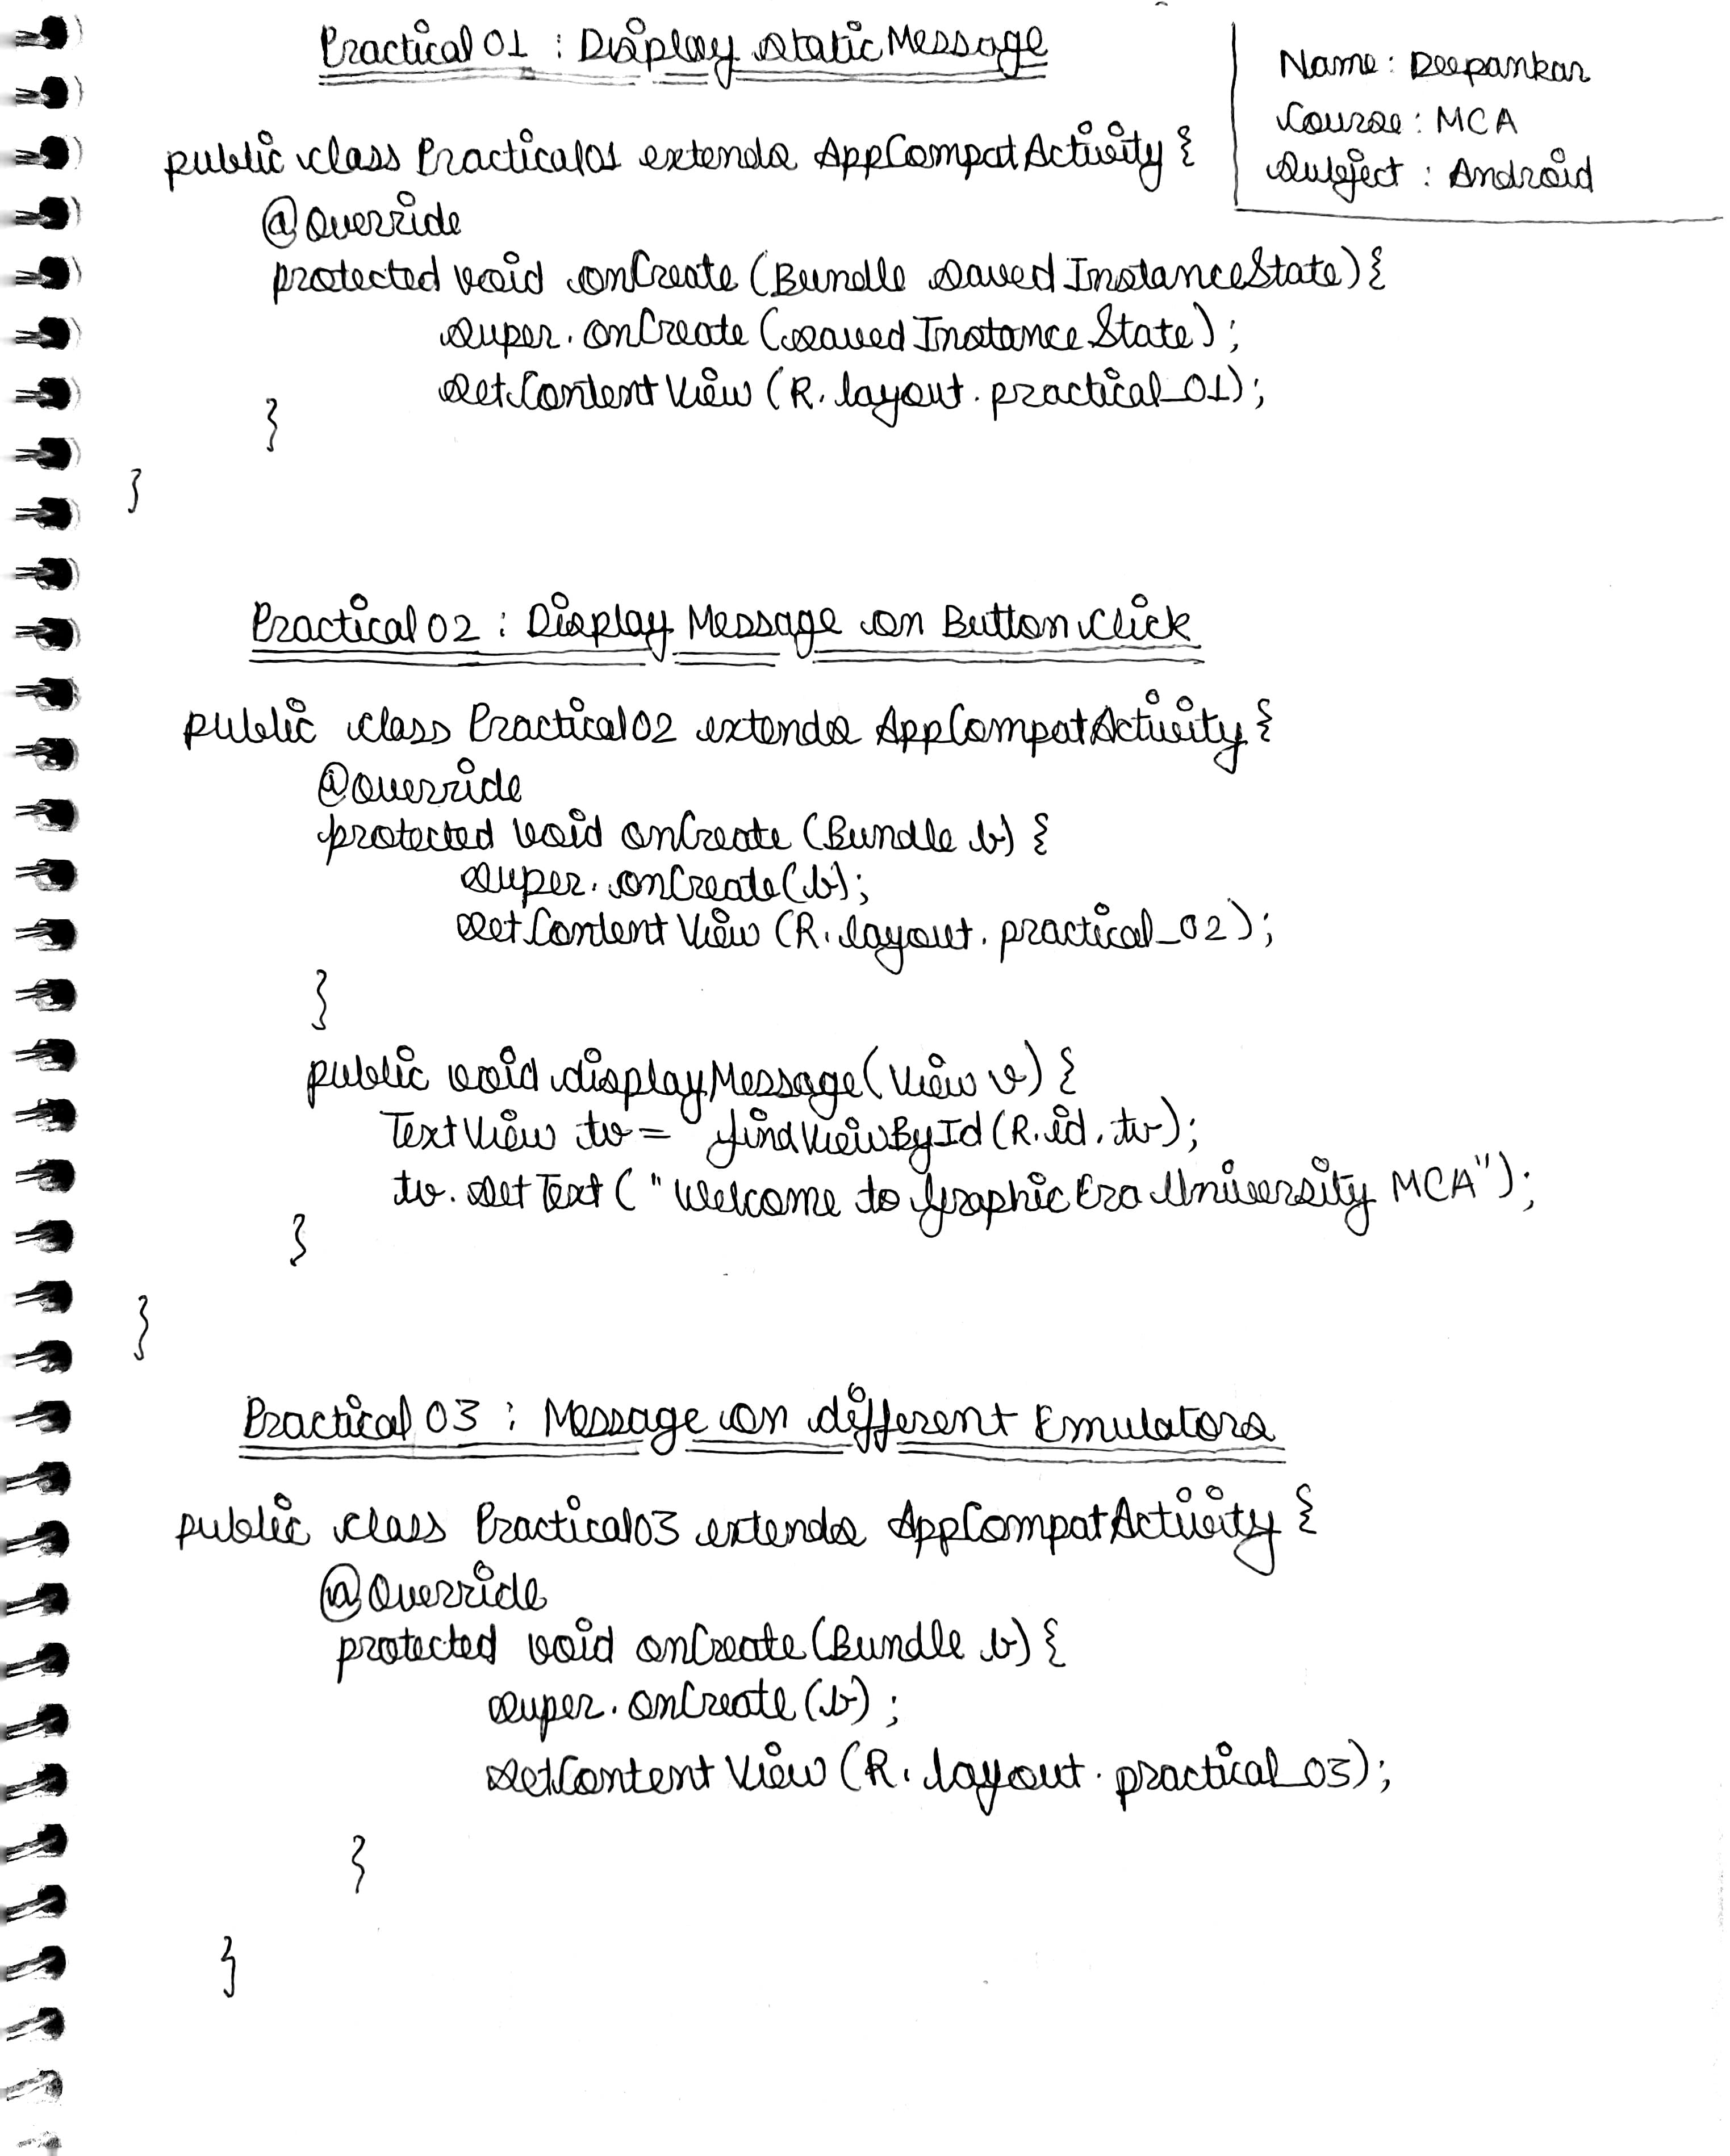 Practical 01 : Display Static Message
Name : Deepankar
Course : MCA
Subject : Android
public class Practical01 extends AppCompatActivity {
@Override
protected void onCreate (Bundle savedInstanceState) {
super.onCreate (savedInstanceState);
setContentView (R.layout.practical_01);
}
}
Practical 02 : Display Message on Button Click
public class Practical02 extends AppCompatActivity {
@override
protected void onCreate (Bundle b) {
super.onCreate(b);
setContentView (R.layout.practical_02);
}
public void displayMessage(View v) {
TextView tv = findViewById (R.id.tv);
tv.setText ("Welcome to Graphic Era University MCA");
}
}
Practical 03 : Message on different Emulators
public class Practical03 extends AppCompatActivity {
@Override
protected void onCreate (Bundle b) {
super.onCreate (b);
setContentView (R.layout.practical_03);
}
}